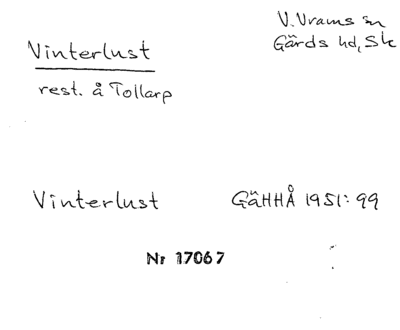 Vinterlust
V. Vrams sn
Gärds hd, Sk
rest. å Tollarp
Vinterlust GäHHÅ 1951: 99
Nr 17067